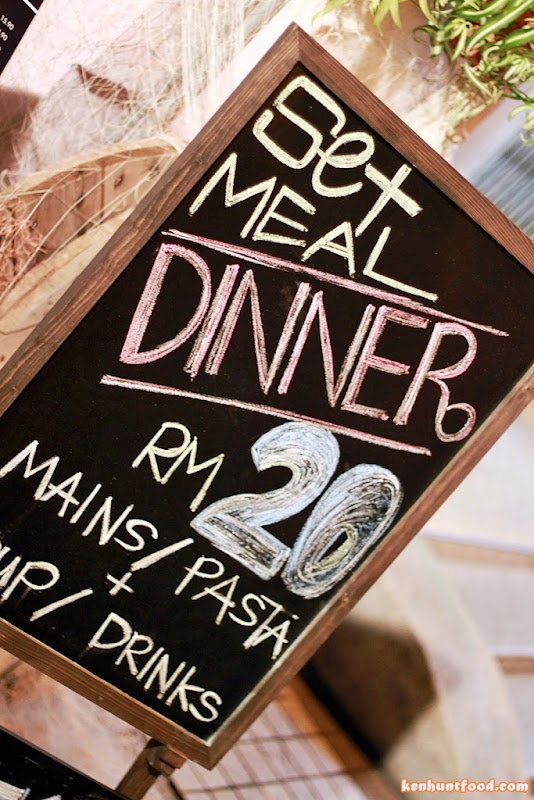 Set
MEAL
DINNER
RM 20
MAINS/PASTA
+
UP/DRINKS
kenhuntfood.com